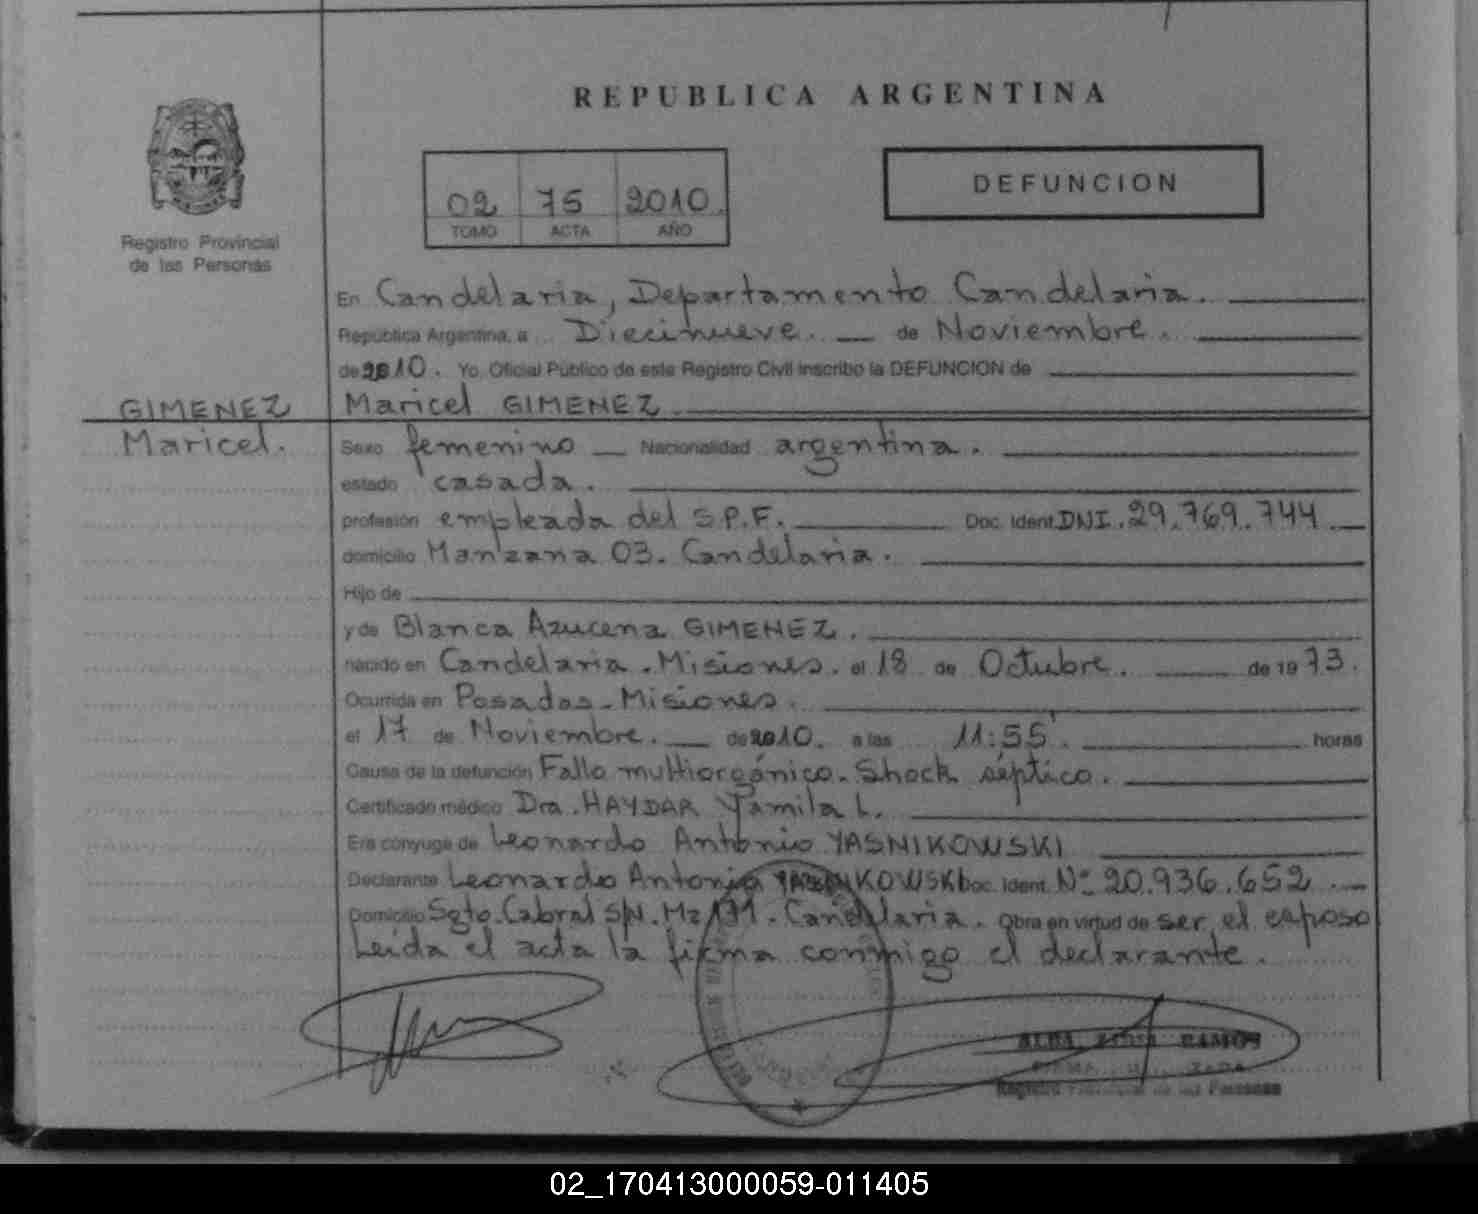 REPUBLICA ARGENTINA
02 75 2010
TOMO ACTA AÑO
DEFUNCION
Registro Provincial
de las Personas
En Candelaria, Departamento Candelaria.
República Argentina, a Diecinueve. de Noviembre.
de 2010. Yo, Oficial Público de este Registro Civil inscribo la DEFUNCION de
GIMENEZ
Maricel.
Maricel GIMENEZ
Sexo femenino Nacionalidad argentina.
estado casada.
profesión empleada del S.P.F. Doc. Ident. DNI. 29.769.744
domicilio Manzana 03. Candelaria.
Hijo de
y de Blanca Azucena GIMENEZ.
nacido en Candelaria. Misiones. el 18 de Octubre. de 19 73.
Ocurrida en Posadas - Misiones.
el 17 de Noviembre. de 2010. a las 11:55'. horas
Causa de la defunción Fallo multiorgánico. Shock séptico.
Certificado médico Dra. HAYDAR Yamila L.
Era cónyuge de Leonardo Antonio YASNIKOWSKI
Declarante Leonardo Antonio YASNIKOWSKI Doc. Ident. Nº 20.936.652
Domicilio Sgto. Cabral S/N. Mz 171. Candelaria. Obra en virtud de ser el esposo
Leída el acta la firma conmigo el declarante.
RAMOS
Registro Provincial de las Personas
02_170413000059-011405